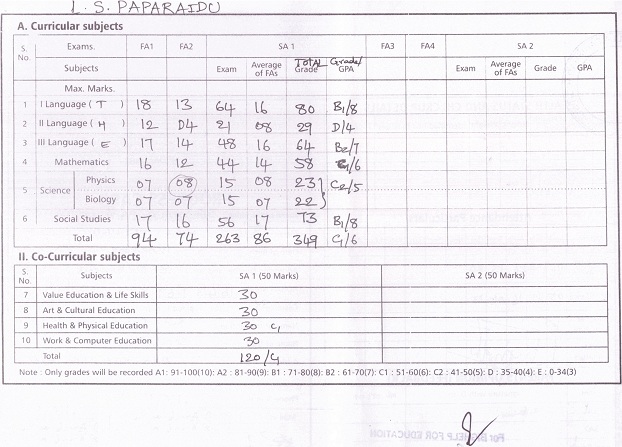 L. S. PAPARAIDU
A. Curricular subjects
S. No. Exams. FA1 FA2 SA 1 FA3 FA4 SA 2
Subjects Exam Average of FAs TOTAL Grade Grade/ GPA Exam Average of FAs Grade GPA
Max. Marks.
1 I Language ( T ) 18 13 64 16 80 B1/8
2 II Language ( H ) 12 04 21 08 29 D/4
3 III Language ( E ) 17 14 48 16 64 B2/7
4 Mathematics 16 12 44 14 58 C1/6
5 Science Physics 07 08 15 08 23 C2/5
Biology 07 07 15 07 22
6 Social Studies 17 16 56 17 73 B1/8
Total 94 74 263 86 349 C1/6
II. Co-Curricular subjects
S. No. Subjects SA 1 (50 Marks) SA 2 (50 Marks)
7 Value Education & Life Skills 30
8 Art & Cultural Education 30
9 Health & Physical Education 30 C1
10 Work & Computer Education 30
Total 120/C1
Note : Only grades will be recorded A1: 91-100(10): A2 : 81-90(9): B1 : 71-80(8): B2 : 61-70(7): C1 : 51-60(6): C2 : 41-50(5): D : 35-40(4): E : 0-34(3)
HELP FOR EDUCATION